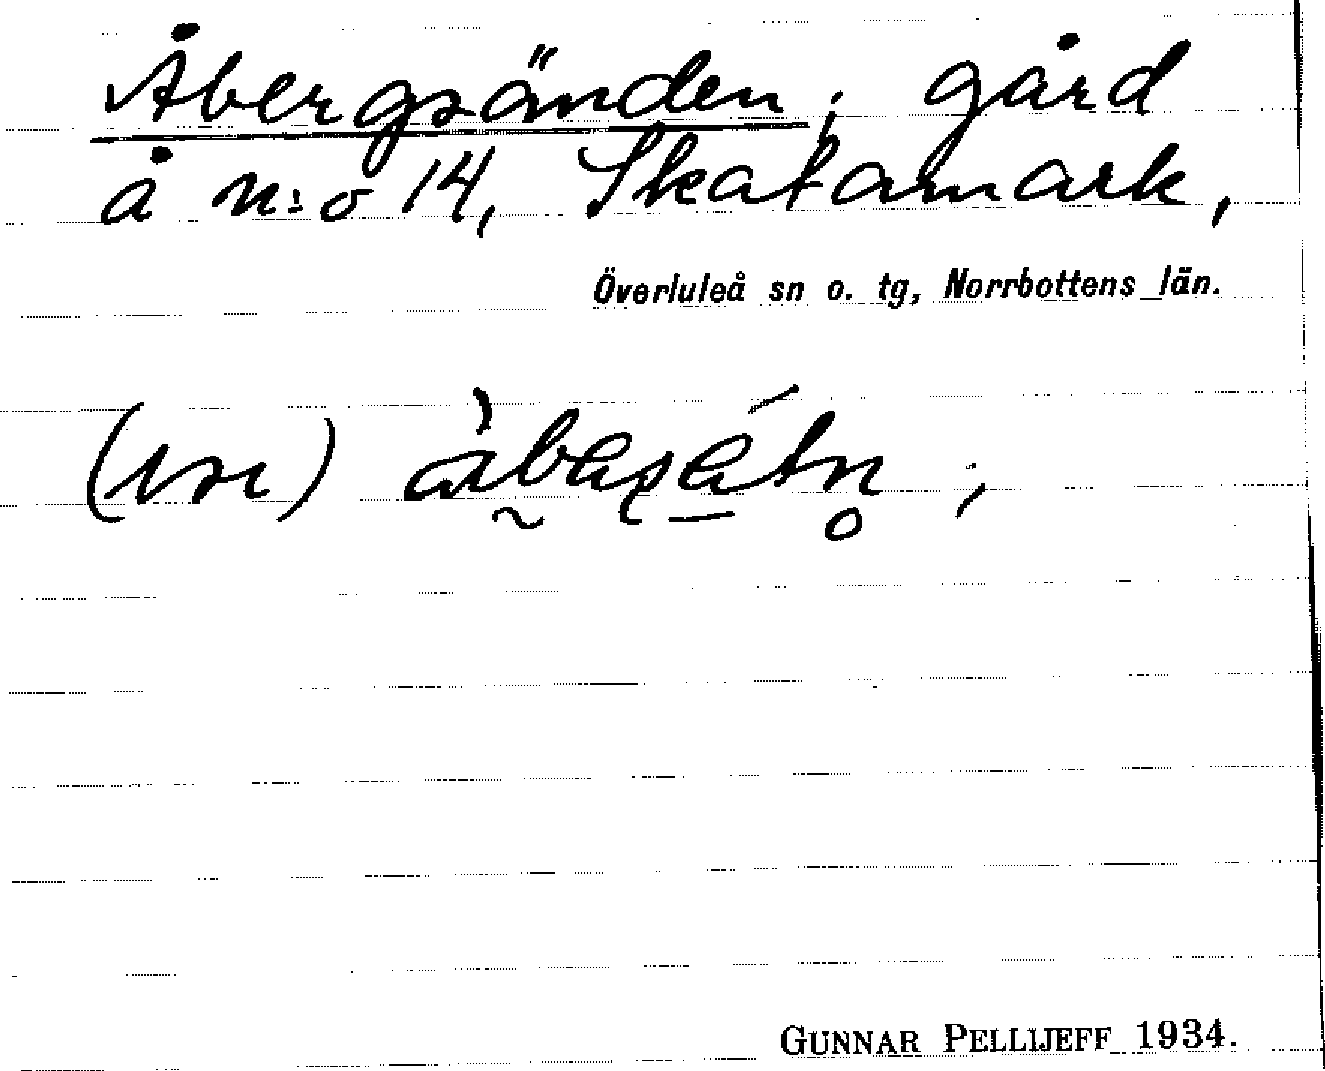 Åbergsänden; gård
å n:o 14, Skatamark,
Överluleå sn o. tg, Norrbottens län.
GUNNAR PELLIJEFF 1934.